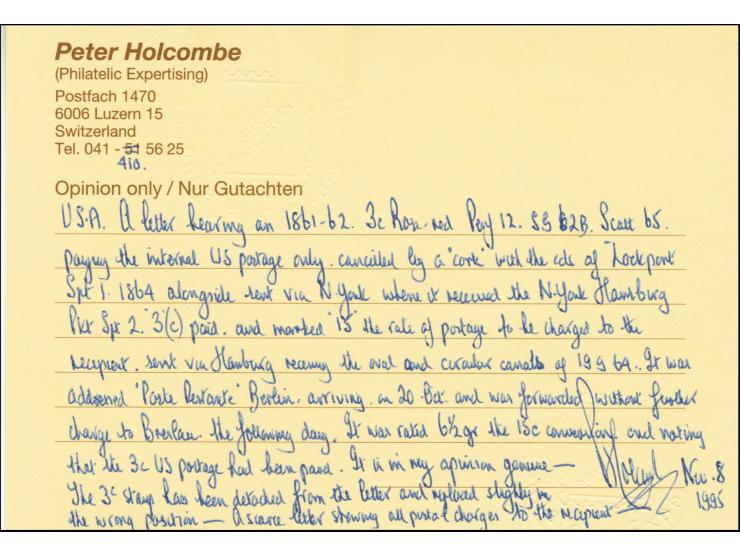 Peter Holcombe
(Philatelic Expertising)
Postfach 1470
6006 Luzern 15
Switzerland
Tel. 041 - 51 56 25
410.
Opinion only / Nur Gutachten
USA. A letter bearing an 1861-62. 3c Rose-red Perf 12. SG 62B. Scott 65.
paying the internal US postage only. cancelled by a "cork" with the cds of "Lockport
Spt 1. 1864 alongside sent via N.York where it received the N.York Hamburg
Pkt Spt 2. "3(c) paid. and marked "15" the rate of postage to be charged to the
recipient. sent via Hamburg receiving the oval and circular cancels of 19 9 64. It was
addressed "Poste Restante" Berlin. arriving on 20 Oct. and was forwarded without further
charge to Breslau the following day. It was rated 6½ gr the 15c conversion and noting
that the 3c US postage had been paid. It is in my opinion genuine —
Nov. 8
1995
The 3c stamp has been detached from the letter and replaced slightly in
the wrong position — A scarce letter showing all postal charges to the recipient